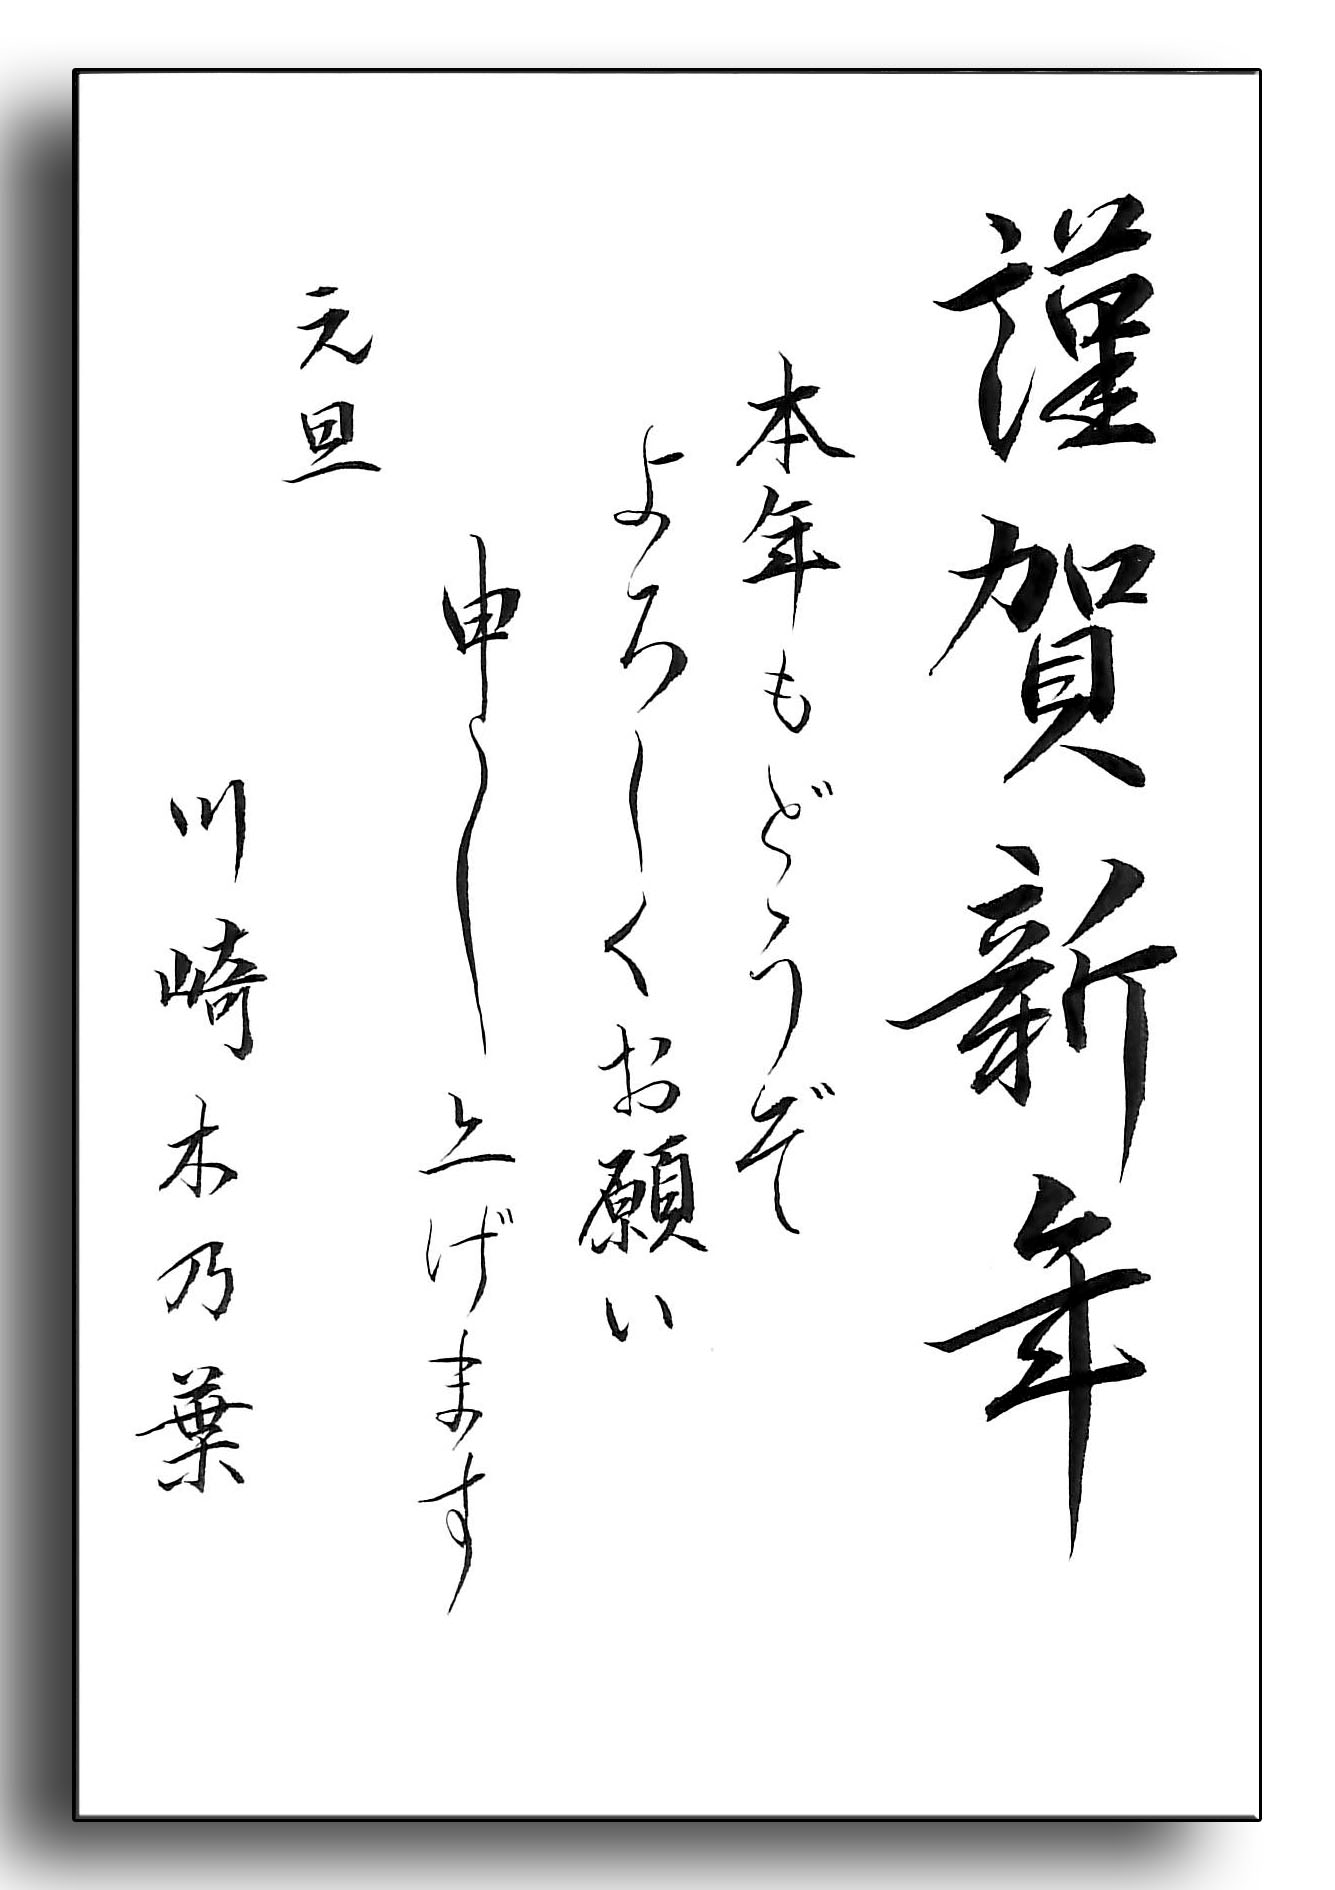 謹賀新年
本年もどうぞ
よろしくお願い
申し上げます
元旦
川崎木乃葉